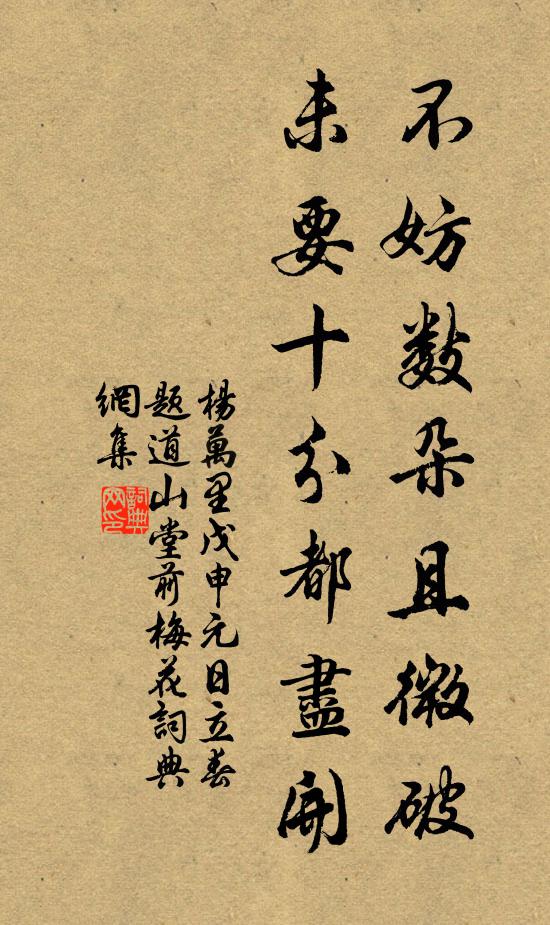 不妨數朶且微破
未要十分都盡開
楊萬里戊申元日立春
題道山堂前梅花詞典
網集
詞典
网印